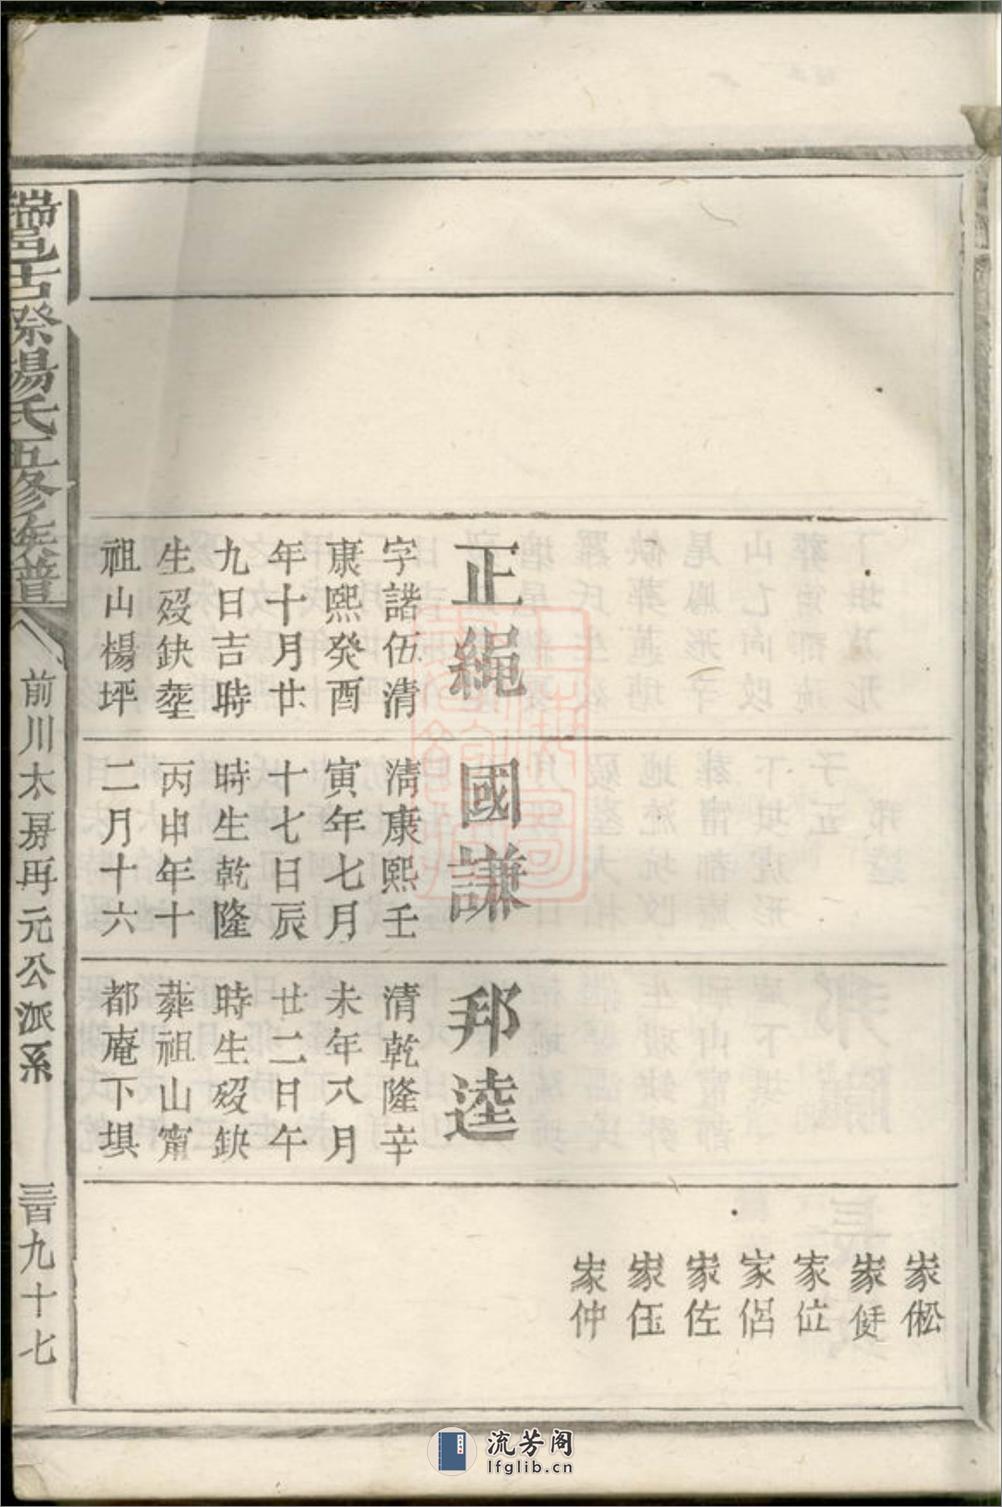 家倯
家㑏
家位
家侶
家佐
家伍
家仲
正繩
字諧伍清
康熙癸酉
年十月廿
九日吉時
生殁缺塟
祖山楊坪
國謙
淸康熙壬
寅年七月
十七日辰
時生乾隆
丙申年十
二月十六
邦逵
清乾隆辛
未年八月
廿二日午
時生殁缺
葬祖山甯
都庵下垻
瑞邑古滎楊氏五修族譜
前川木房再元公派系
三百九十七
流芳阁
lfglib.cn